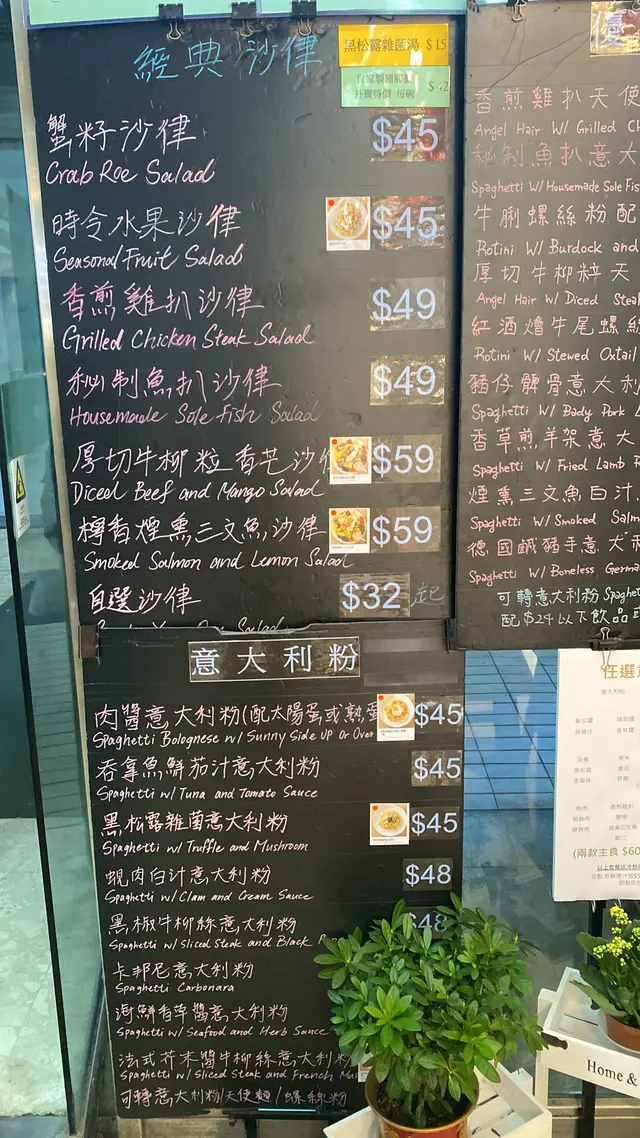 經典沙律
黑松露雜菌湯 $15
外賣特價 每碗 $42
蟹籽沙律 $45
Crab Roe Salad
時令水果沙律 $45
Seasonal Fruit Salad
香煎雞扒沙律 $49
Grilled Chicken Steak Salad
秘制魚扒沙律 $49
Housemade Sole Fish Salad
厚切牛柳粒香芒沙 $59
Diced Beef and Mango Salad
檸香煙熏三文魚沙律 $59
Smoked Salmon and Lemon Salad
自選沙律 $32起
意大利粉
肉醬意大利粉(配太陽蛋或熟蛋 $45
Spaghetti Bolognese w/ Sunny Side Up Or Over
吞拿魚鮮茄汁意大利粉 $45
Spaghetti w/ Tuna and Tomato Sauce
黑松露雜菌意大利粉 $45
Spaghetti w/ Truffle and Mushroom
蜆肉白汁意大利粉 $48
Spaghetti w/ Clam and Cream Sauce
黑椒牛柳絲意大利粉 $48
Spaghetti w/ Sliced Steak and Black
卡邦尼意大利粉
Spaghetti Carbonara
海鮮香草醬意大利粉
Spaghetti w/ Seafood and Herb Sauce
法式芥末醬牛柳絲意大利粉
Spaghetti w/ Sliced Steak and French
可轉意大利粉/天使麵/螺絲粉
優
香煎雞扒天使
Angel Hair W/ Grilled
秘制魚扒意大
Spaghetti W/ Housemade Sole Fis
牛蒡螺絲粉配
Rotini W/ Burdock and
厚切牛柳粹天
Angel Hair W/ Diced Stea
紅酒燴牛尾螺絲
Rotini W/ Stewed Oxtail
豬仔髀骨意大利
Spaghetti W/ Baby Pork
香草煎羊架意大
Spaghetti W/ Fried Lamb
煙熏三文魚白汁
Spaghetti W/ Smoked Salm
德國鹹豬手意大利
Spaghetti W/ Boneless Germa
可轉意大利粉 Spaghet
配$24以下飲品
任選
(兩款主食 $60
Home &